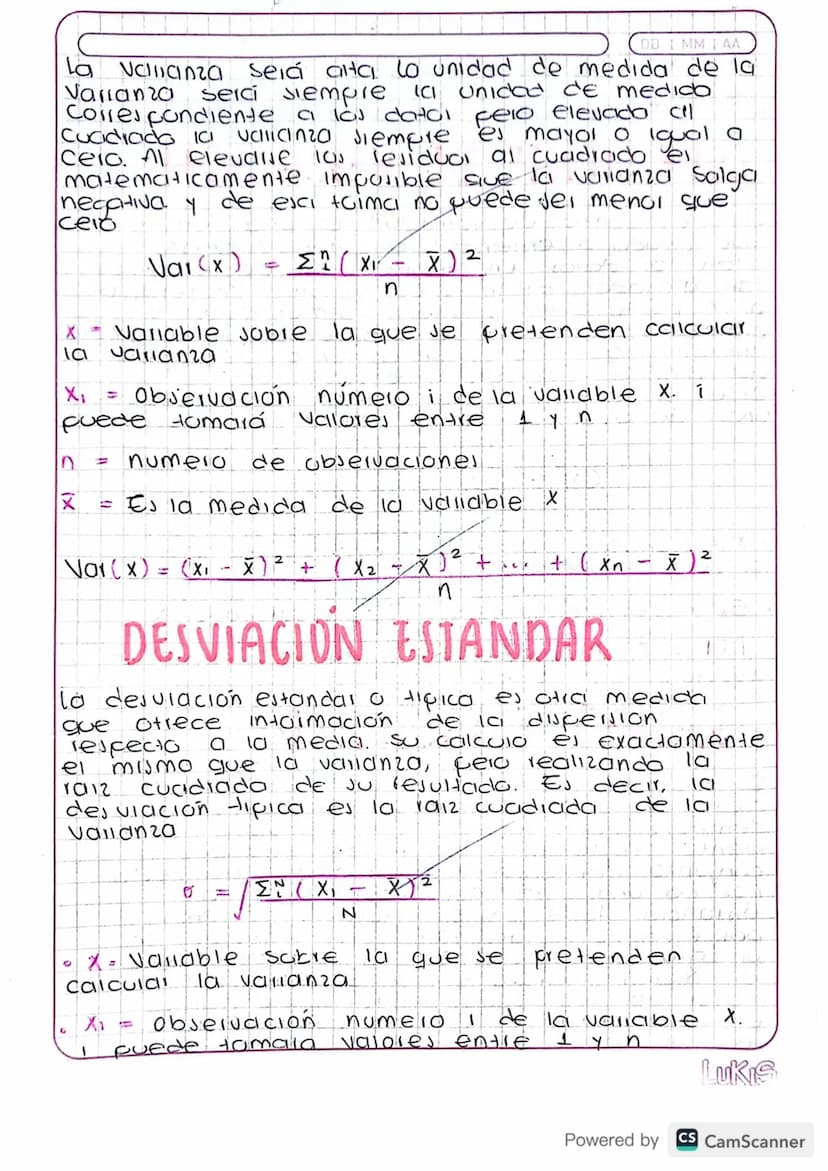 DD | MM | AA
La varianza será alta lo unidad de medida de la
varianza será siempre la unidad de medida
correspondiente a los datos pero elevado al
cuadrado la varianza siempre es mayor o igual a
cero. Al elevarse los residuos al cuadrado es
matematicamente imposible que la varianza salga
negativa y de esa forma no puede ser menor que
cero
Var(x) = Σⁿᵢ (xᵢ - x̄)²
n
x - Variable sobre la que se pretenden calcular
la varianza
Xᵢ = Observación número i de la variable x. i
puede tomará valores entre 1 y n.
n = numero de observaciones
x̄ = Es la medida de la variable x
Var(x) = (x₁ - x̄)² + (x₂ - x̄)² + ... + (xn - x̄)²
n
DESVIACIÓN ESTANDAR
La desviación estandar o tipica es otra medida
que ofrece información de la dispersion
respecto a la media. su calculo es exactamente
el mismo que la varianza, pero realizando la
raiz cuadrada de su resultado. Es decir, la
desviación tipica es la raiz cuadrada de la
varianza
σ = √Σᴺᵢ (Xᵢ - X̄)²
N
• x = Variable sobre la que se pretenden
calcular la varianza
• Xᵢ = observación numero i de la variable x.
i puede tomara valores entre 1 y n
LUKIS
Powered by CS CamScanner